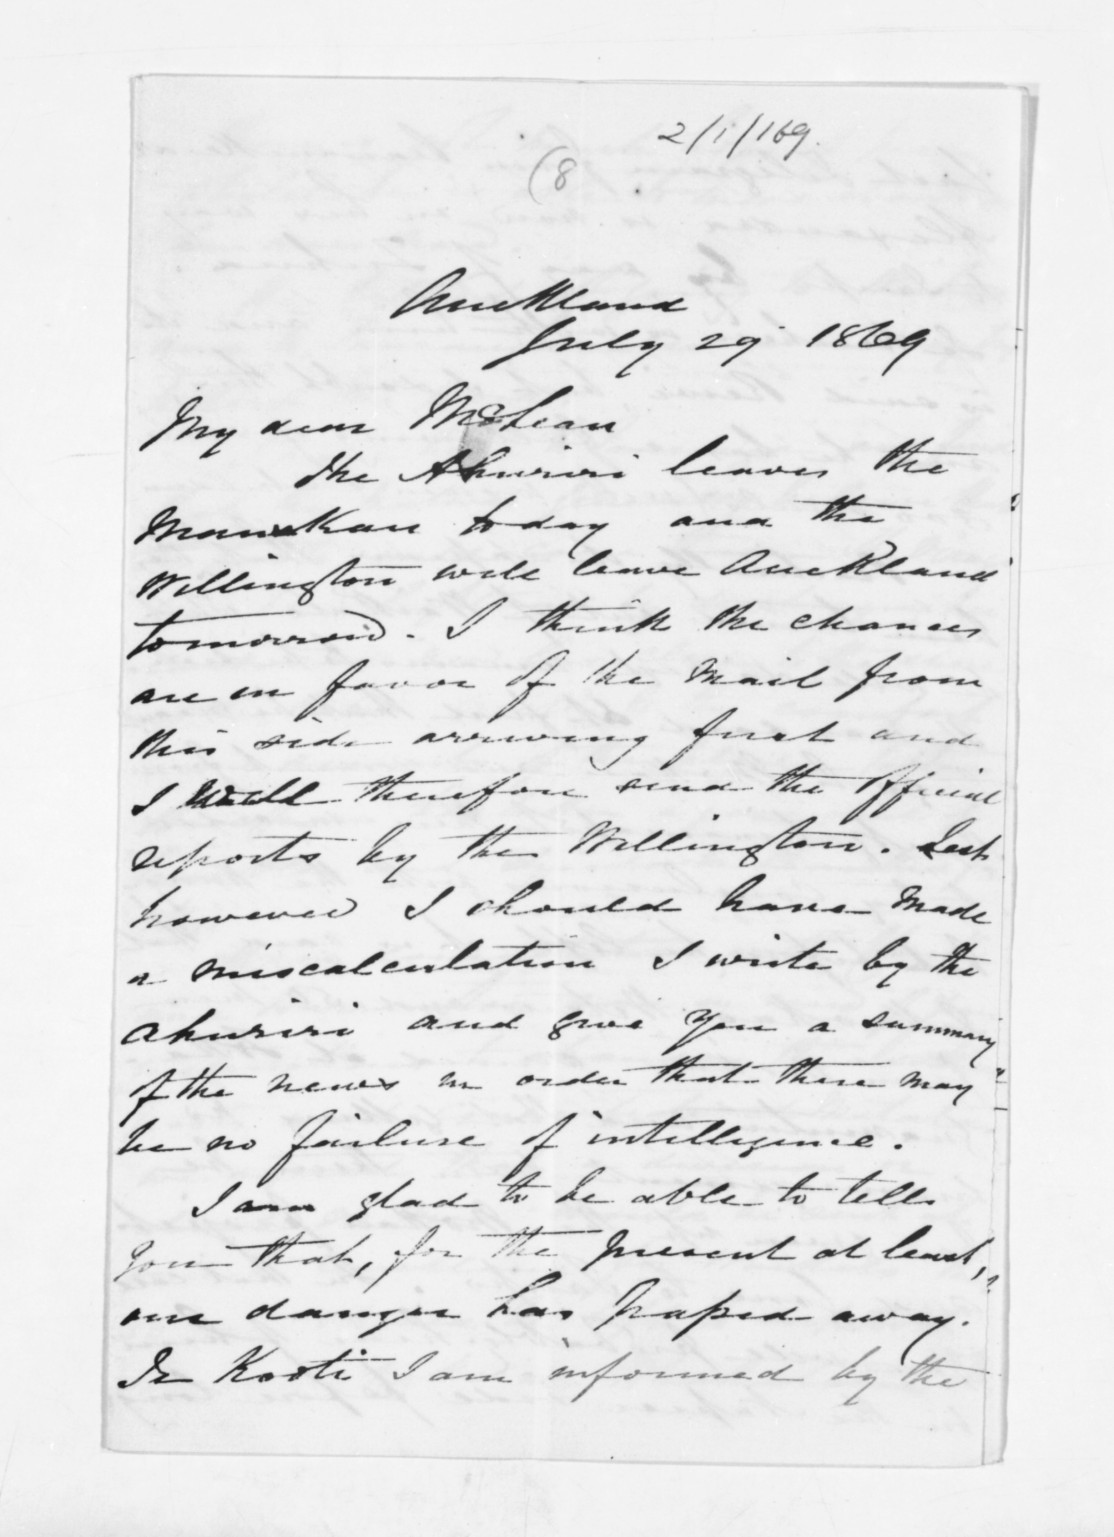 2/1/169.
(8
Auckland
July 29 1869
My dear McLean
The Ahuriri leaves the
Manukau today and the
Wellington will leave Auckland
tomorrow. I think the chances
are in favor of the Mail from
this side arriving first and
I will therefore send the Official
reports by the Wellington. Lest
however I should have made
a miscalculation I write by the
Ahuriri and give you a summary
of the news in order that there may
be no failure of intelligence.
I am glad to be able to tell
you that, for the present at least,
our danger has passed away.
Te Kooti I am informed by the